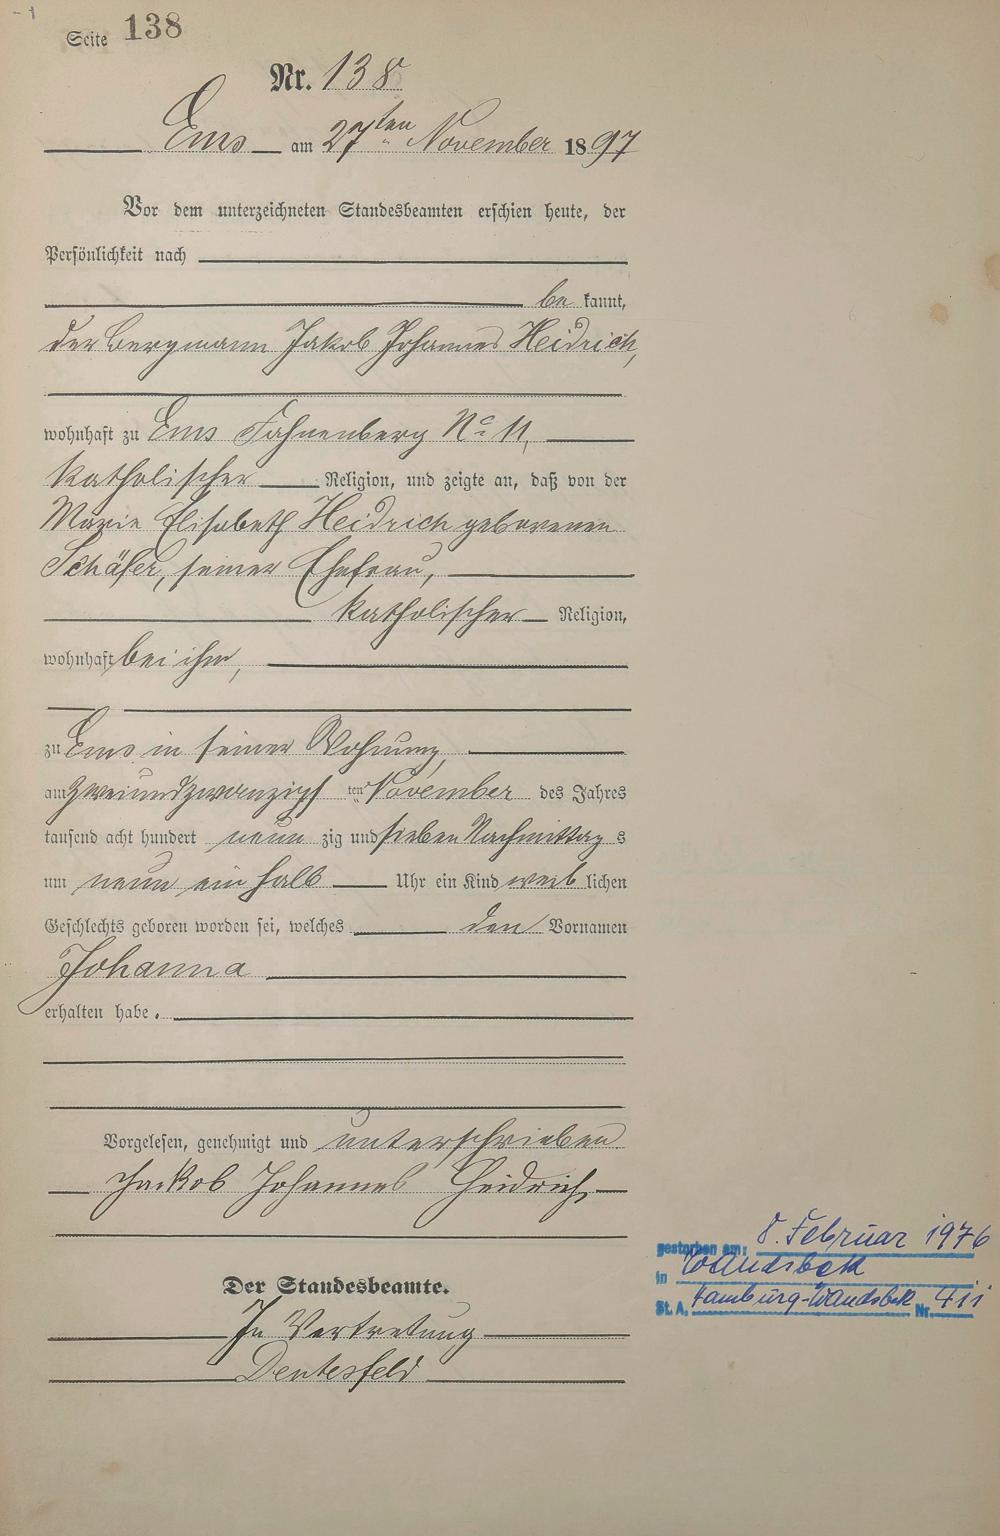 Seite 138
Nr. 138
Ems am 27ten November 1897
Vor dem unterzeichneten Standesbeamten erschien heute, der
Persönlichkeit nach
be kannt,
der Bergmann Jakob Johannes Heidrich,
wohnhaft zu Ems Fahnenberg No 11,
katholischer Religion, und zeigte an, daß von der
Marie Elisabeth Heidrich geborenen
Schäfer, seiner Ehefrau,
katholischer Religion,
wohnhaft bei ihm,
zu Ems in seiner Wohnung,
am zweiundzwanzigs ten November des Jahres
tausend acht hundert neun zig und sieben Nachmittag s
um neun ein halb Uhr ein Kind weib lichen
Geschlechts geboren worden sei, welches den Vornamen
Johanna
erhalten habe.
Vorgelesen, genehmigt und unterschrieben
Jackob Johannes Heidrich
Der Standesbeamte.
In Vertretung
gestorben am: 8. Februar 1976
in Wandsbek
St. A. Hamburg-Wandsbek Nr. 411